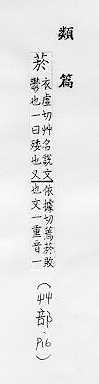 類篇
菸
衣虛切艸名說文
鬱也一曰矮也又
依據切蔫菸敗
也文一重音一
(艸部.P16)